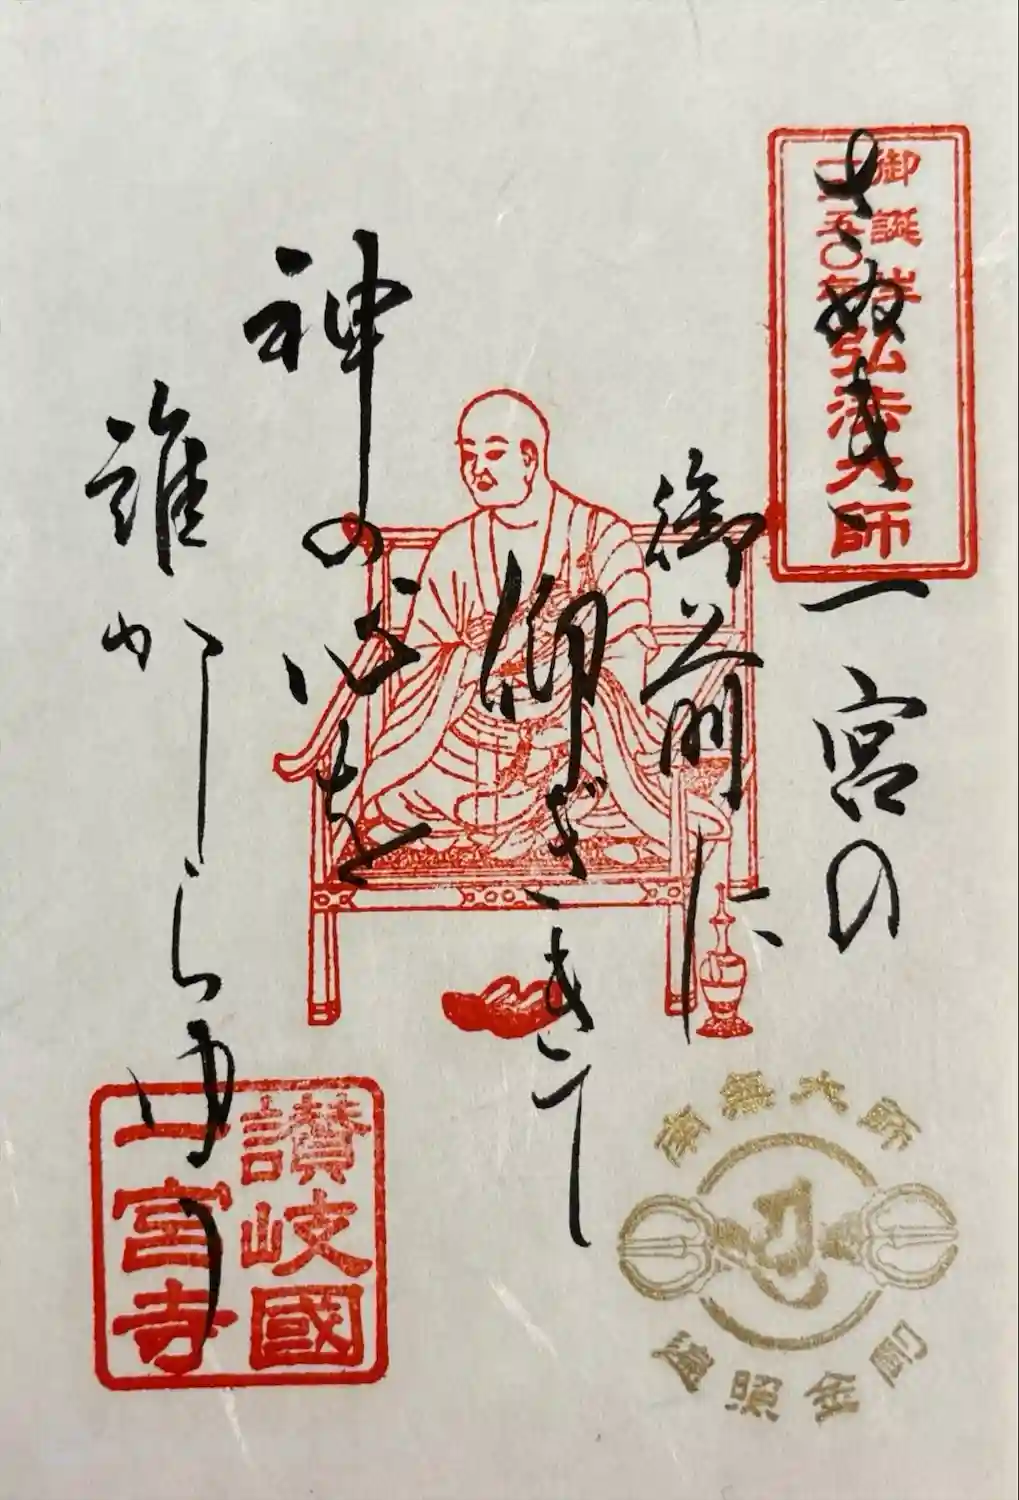 さぬき一宮の
御前に
仰ぎきて
神の心を
誰かしらゆう
御誕生
一二五〇年
弘法大師
讃岐國
一宮寺
南無大師
遍照金剛